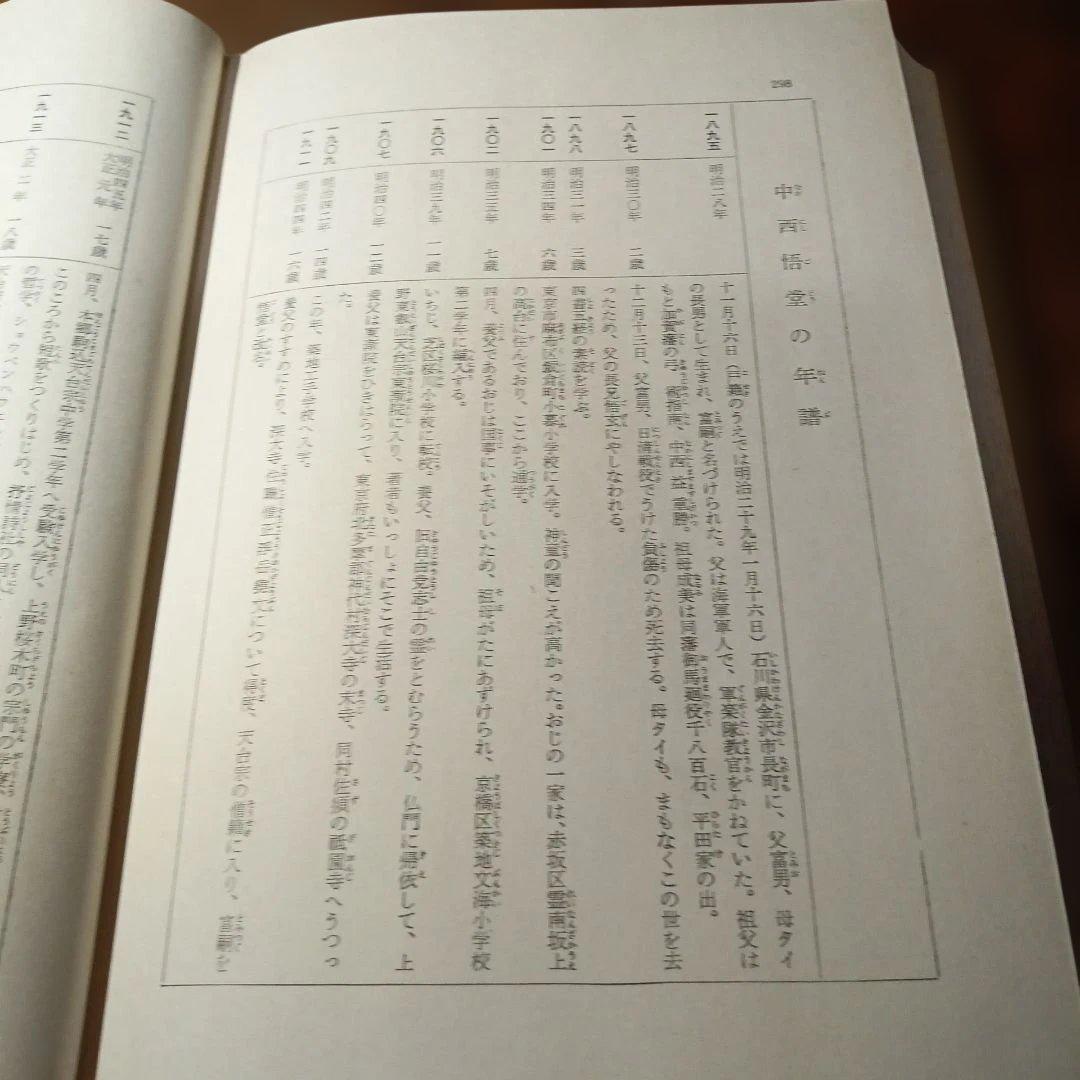 298
中西悟堂の年譜
一八九五 明治二八年
十一月十六日（戸籍のうえでは明治二十九年一月十六日）石川県金沢市長町に、父富男、母タイ
の長男として生まれ、富嗣と名づけられた。父は海軍軍人で、軍楽隊教官をかねていた。祖父は
もと加賀藩の弓術指南、中西 重勝。祖母成美は同藩御馬廻役千八百石、平田家の出。
一八九七 明治三〇年 二歳
十二月十三日、父富男、日清戦役でうけた負傷のため死去する。母タイも、まもなくこの世を去
ったため、父の長兄悟玄にやしなわれる。
一八九八 明治三一年 三歳
四書五経の素読を学ぶ。
一九〇一 明治三四年 六歳
東京市麻布区飯倉町小暮小学校に入学。神童の聞こえが高かった。おじの一家は、赤坂区霊南坂上
の高台に住んでおり、ここから通学。
一九〇二 明治三五年 七歳
四月、養父であるおじは国事にいそがしいため、祖母がたにあずけられ、京橋区築地文海小学校
第二学年に編入する。
一九〇六 明治三九年 一一歳
いちじ、芝区桜川小学校に転校。養父、旧自由党志士の霊をとむらうため、仏門に帰依して、上
野東叡山天台宗東漸院に入り、著者もいっしょにそこで生活する。
一九〇七 明治四〇年 一二歳
養父は東漸院をひきはらって、東京府北多摩郡神代村深大寺の末寺、同村佐須の祇園寺へうつっ
た。
一九〇九 明治四二年 一四歳
この年、築地工手学校へ入学。
一九一一 明治四四年 一六歳
養父のすすめにより、深大寺 について得度、天台宗の僧籍に入り、富嗣を
悟堂と改名。
一九一二 明治四五年
大正元年 一七歳
四月、本郷駒込天台宗中学第二学年へ受験入学し、上野桜木町の宗門の学寮
このころから短歌をつくりはじめ、
一九一三 大正二年 一八歳
の哲学、ショウペンハ